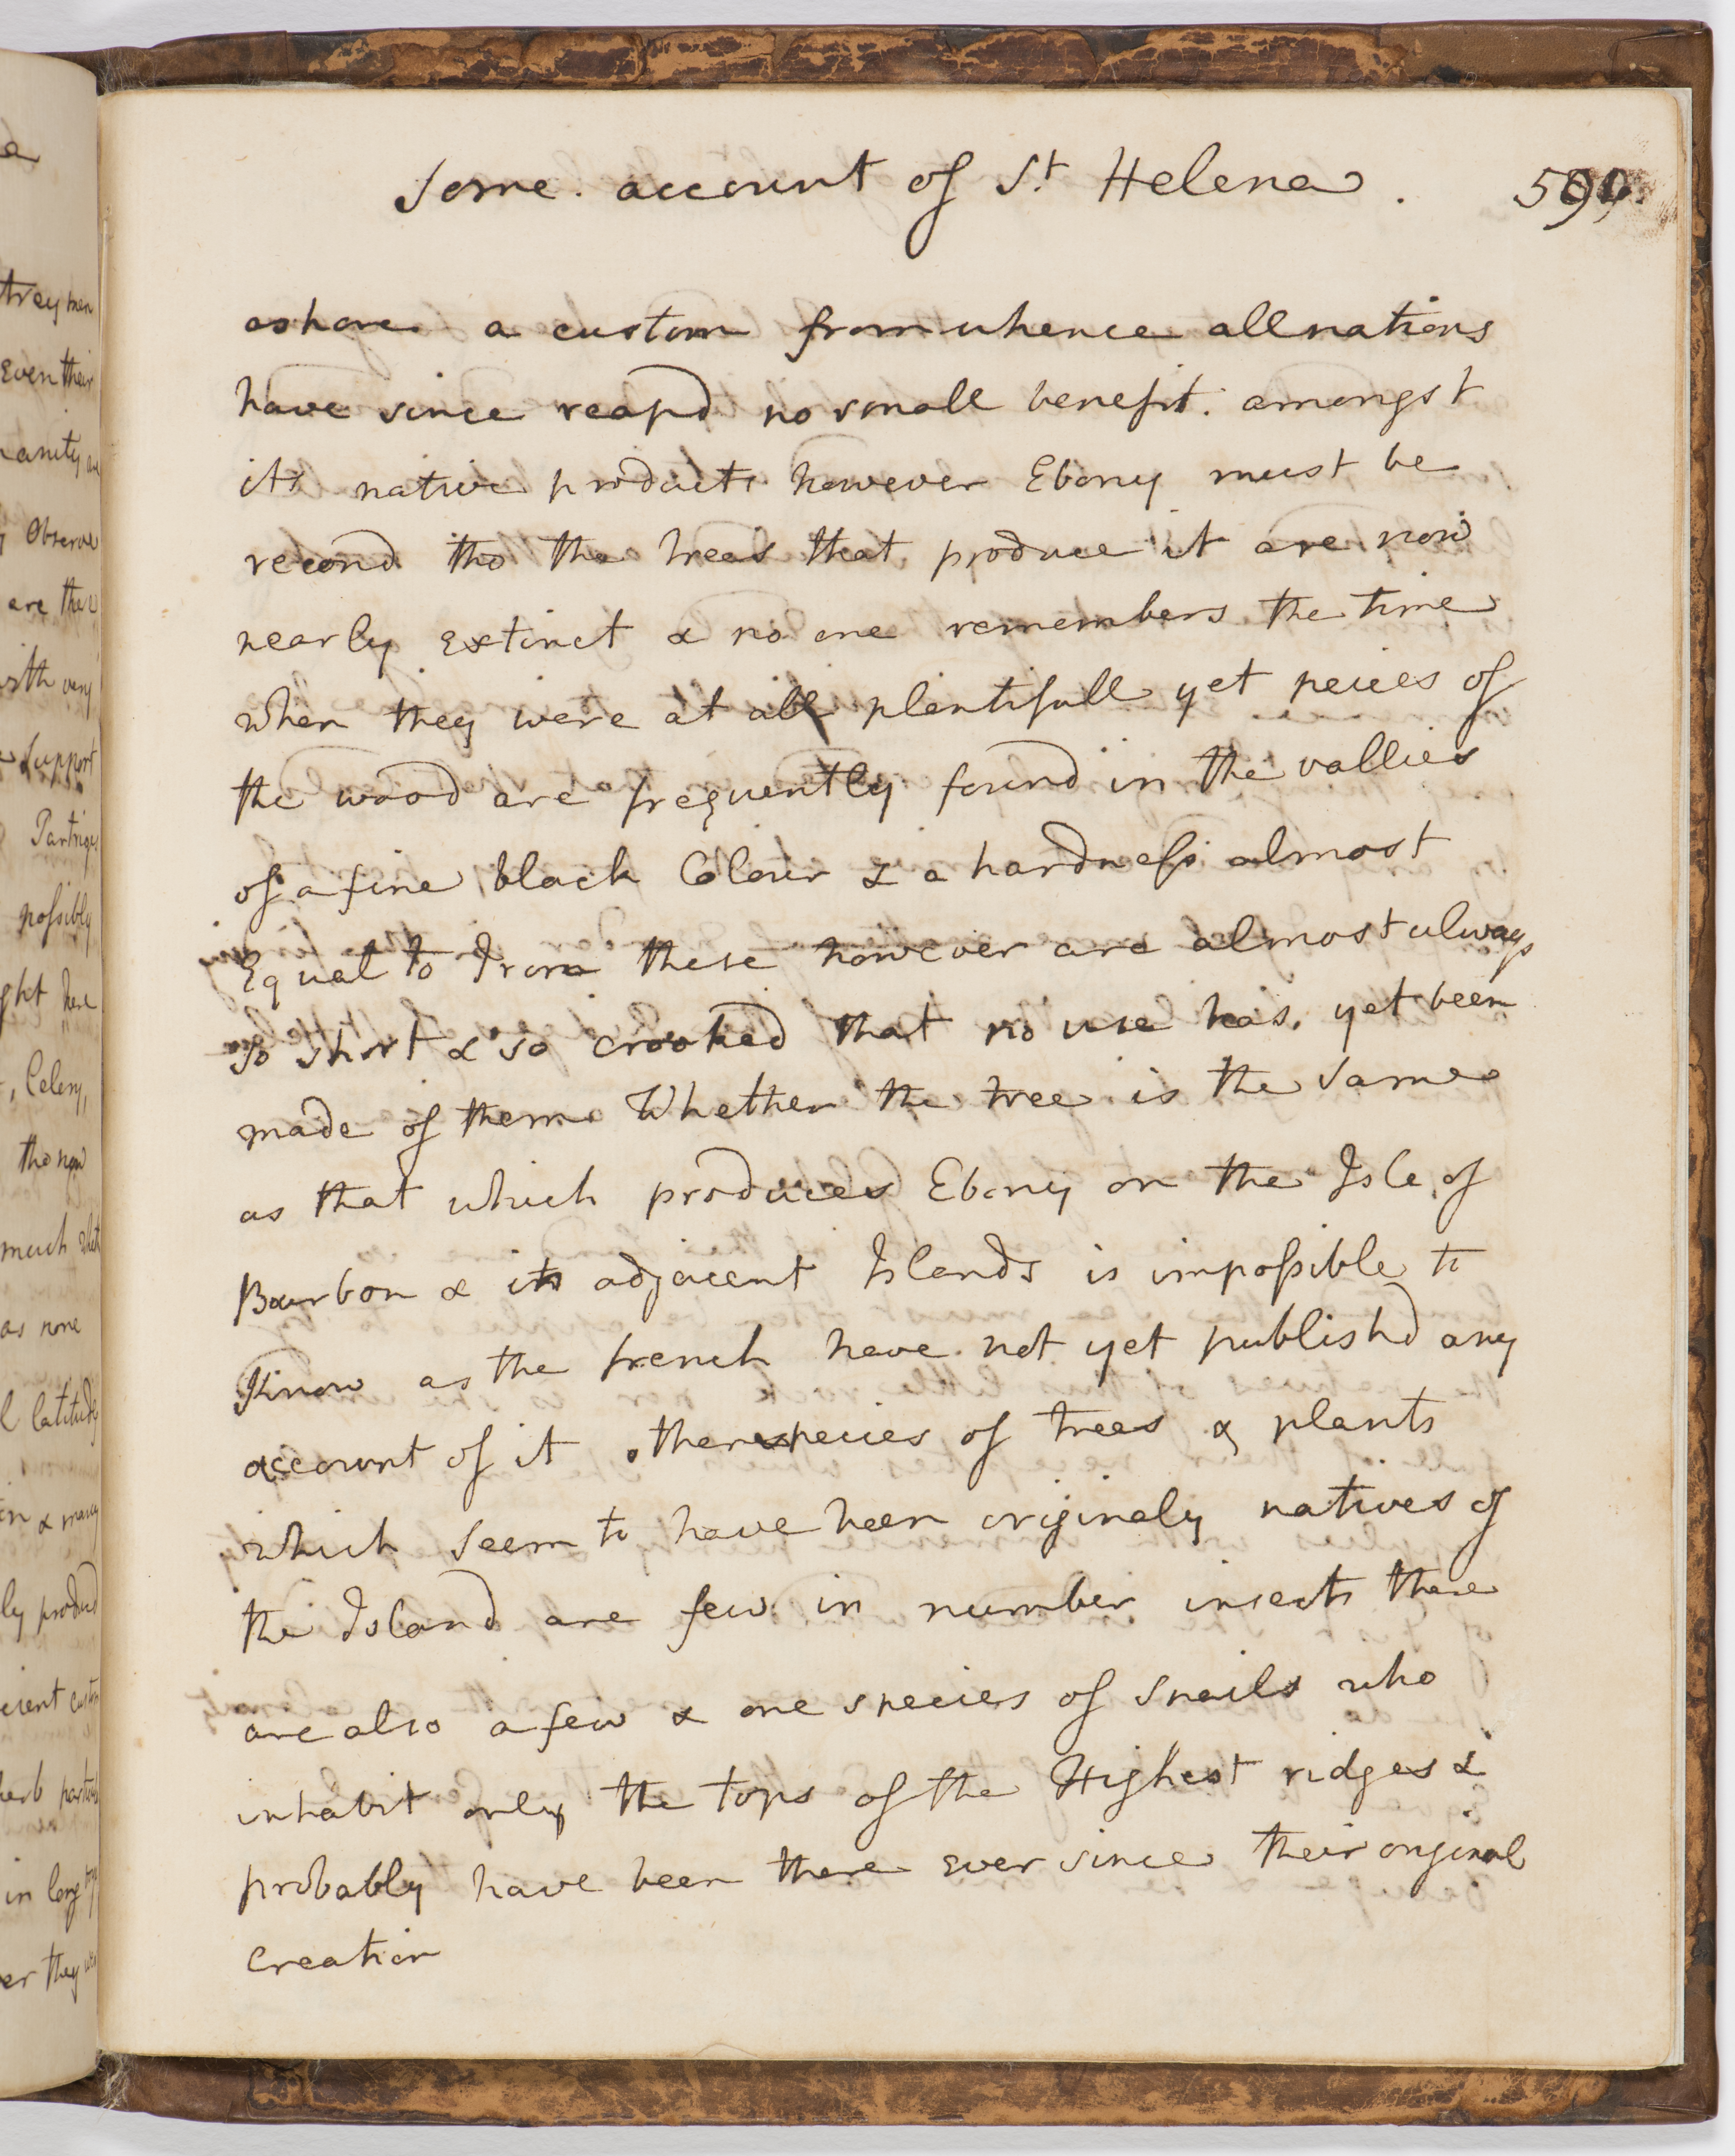 a
trey men
Even their
anity are
Observe
are the
with very
Support
Partriges
possibly
ght here
, Celery,
tho now
much
as none
l latitude
in & many
ly producd
cient custom
herb
in long
er they
Some account of St Helena. 591.
ashore a custom from whence all nations
have since reapd no small benefit. amongst
its native products however Ebony must be
recond tho the trees that produce it are now
nearly extinct & no one remembers the time
when they were at all plentifull yet peices of
the wood are frequently found in the vallies
of a fine black Colour & a hardness almost
Equal to Iron these however are almost always
so short & so crooked that no use has yet been
made of them Whether the tree is the same
as that which produces Ebony on the Isle of
Bourbon & its adjacent Islands is impossible to
Know as the french have not yet publishd any
account of it other species of trees & plants
which seem to have been originaly natives of
the Island are few in number insects there
are also a few & one species of Snails who
inhabit only the tops of the Highest ridges &
probably have been there ever since their original
creation